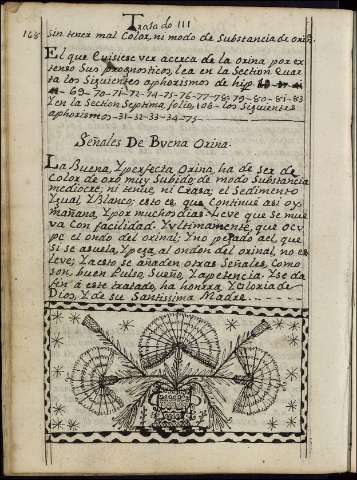 Tratado III
168
sin tener mal Color, ni modo de Substancia de orina.
El que Quisiese ver acerca de la Orina por ex
tenso Sus prognosticos, lea en la Section Quar
ta los Siguientes aphorismos de hip
69-70-71-72-74-75-76-77-78-79-80-81-83
Y en la Section Septima folio, 106- los Siguientes
aphorismos-31-32-33-34-75-
Señales De Buena Orina.
La Buena, Y perfecta Orina, ha de Ser de
Color de oro muy Subido, de modo Substancia
mediocre, ni tenue, ni Crasa; el Sedimento
Ygual, Y Blanco; esto es, que Continue asi oy-
mañana, Y por muchos dias. Leve que se mue
va Con facilidad. Y ultimamente, que ocu
pe el ondon del orinal; Y no pegado a el, que
si se asuela, Y pega al ondon del orinal, no es
leve; Y a esto se añaden otras Señales, Como
son, buen Pulso, Sueño, Y apetencia. Y se da
fin â este tratado, ha honrra, Y Gloria de
Dios, Y de su Santissima Madre